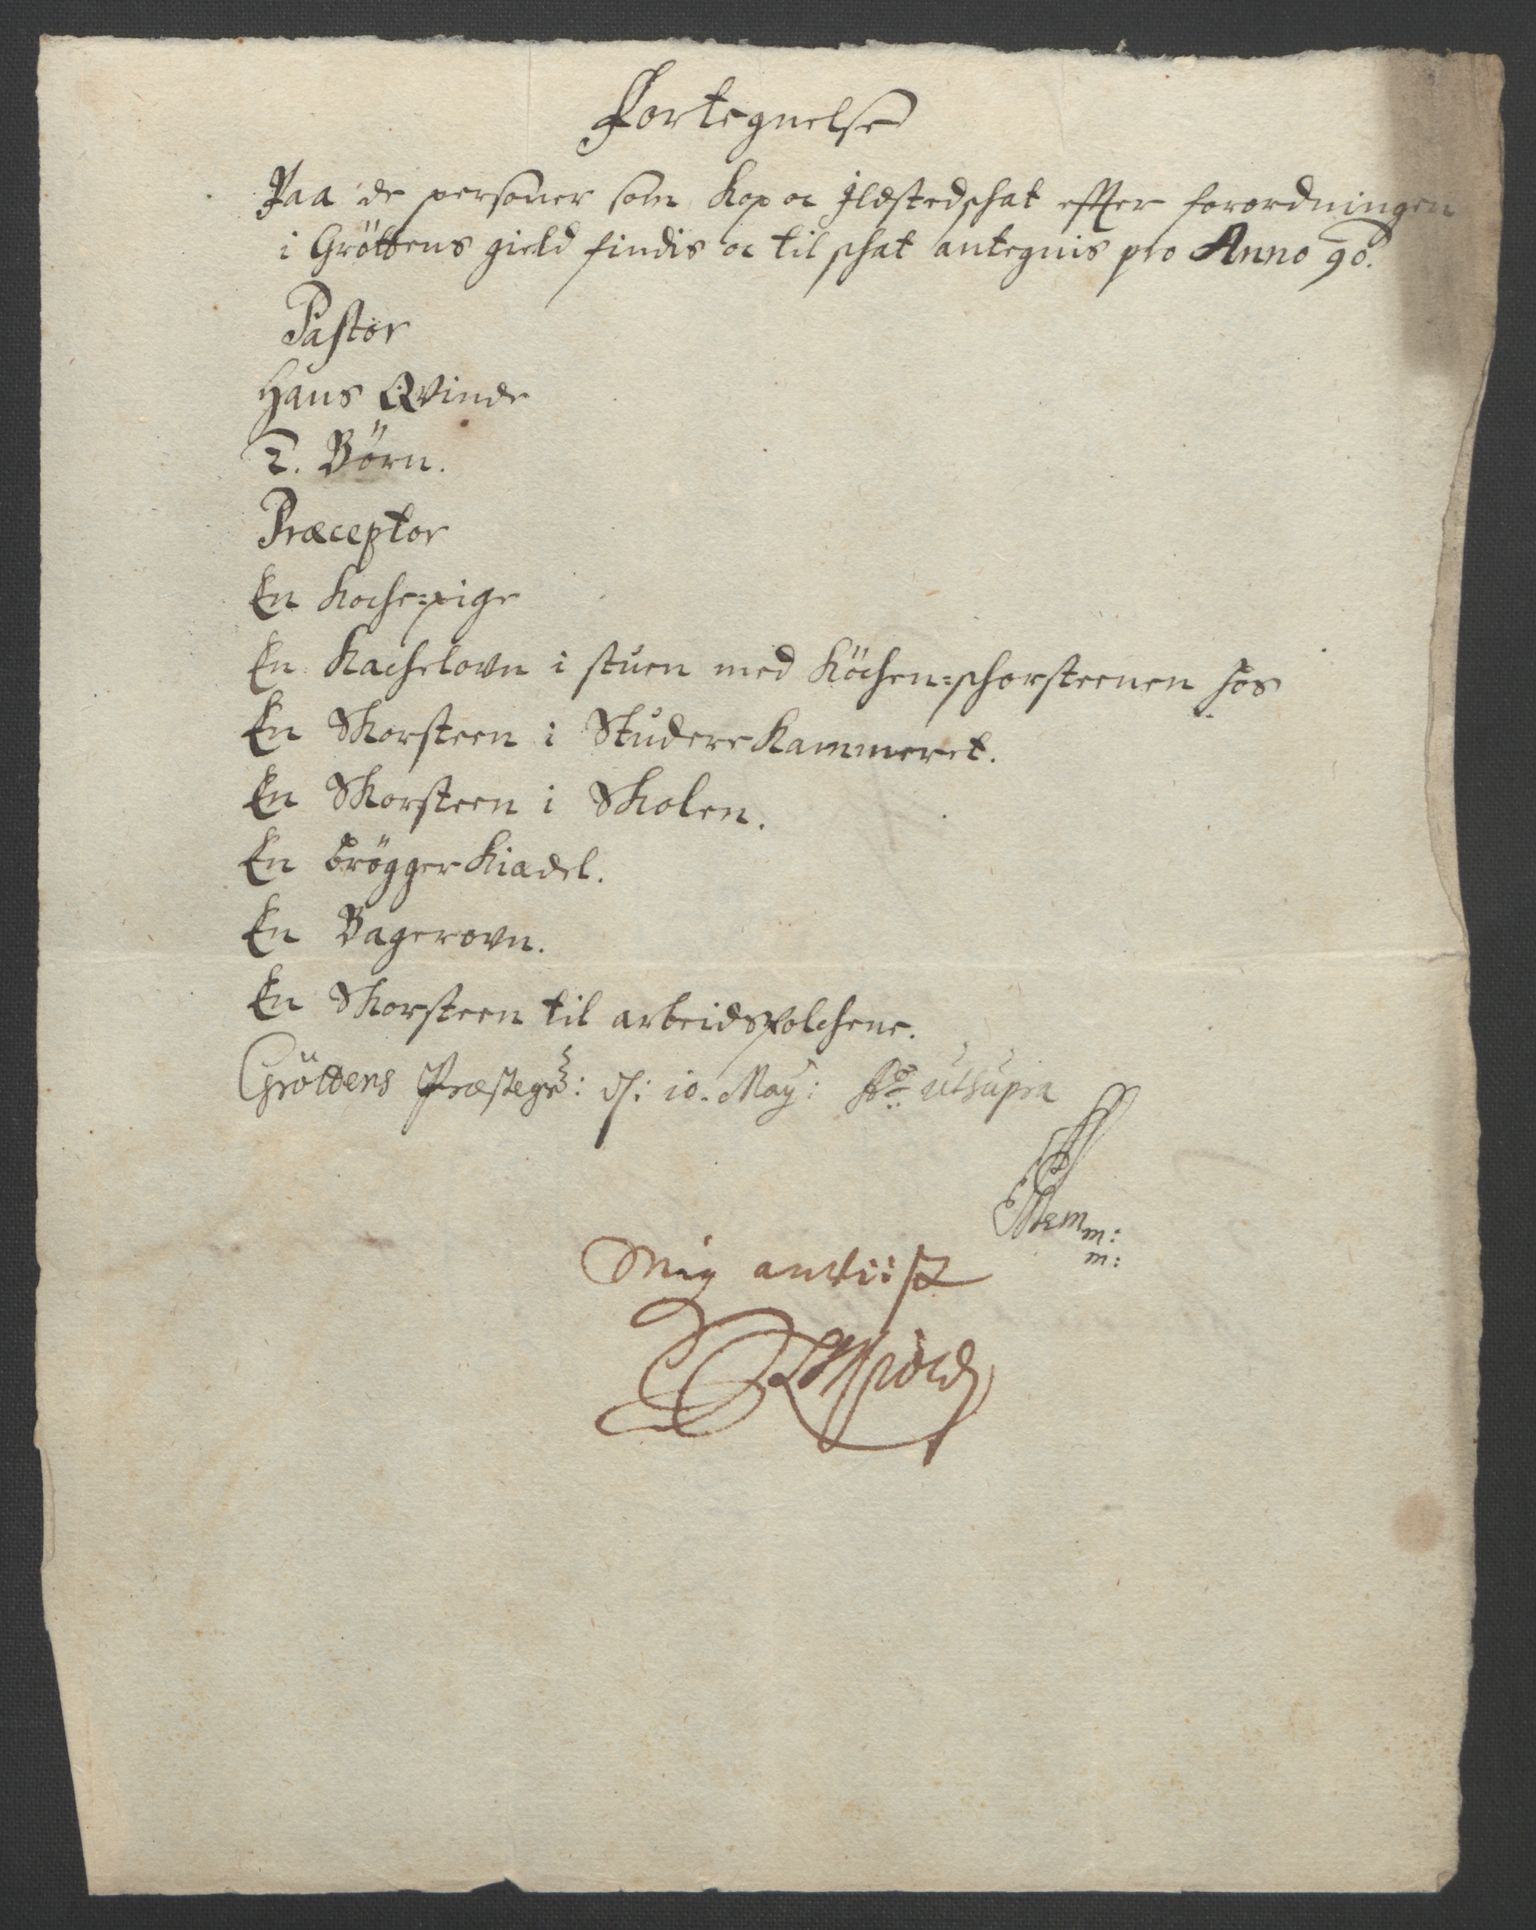 Fortegnelse
Paa de personer som Kop oc Ildstedschat effter forordningen
i Gröttens gield findis oc til schat antegnis pro Anno 90.
Pastor
Hans Qvinde
2. Börn.
Præceptor
En Koche=pige
En Kachelovn i stuen med Köchen=schorsteenen hos
En Skorsteen i StudereKammeret.
En Skorsteen i Skolen.
En bröggerKiadel.
En Bagerovn.
En Skorsteen til arbeidsfolchene.
Gröttens Præsteg: d: 10. May: Ao utsupra
m:
m:
Mig anviist